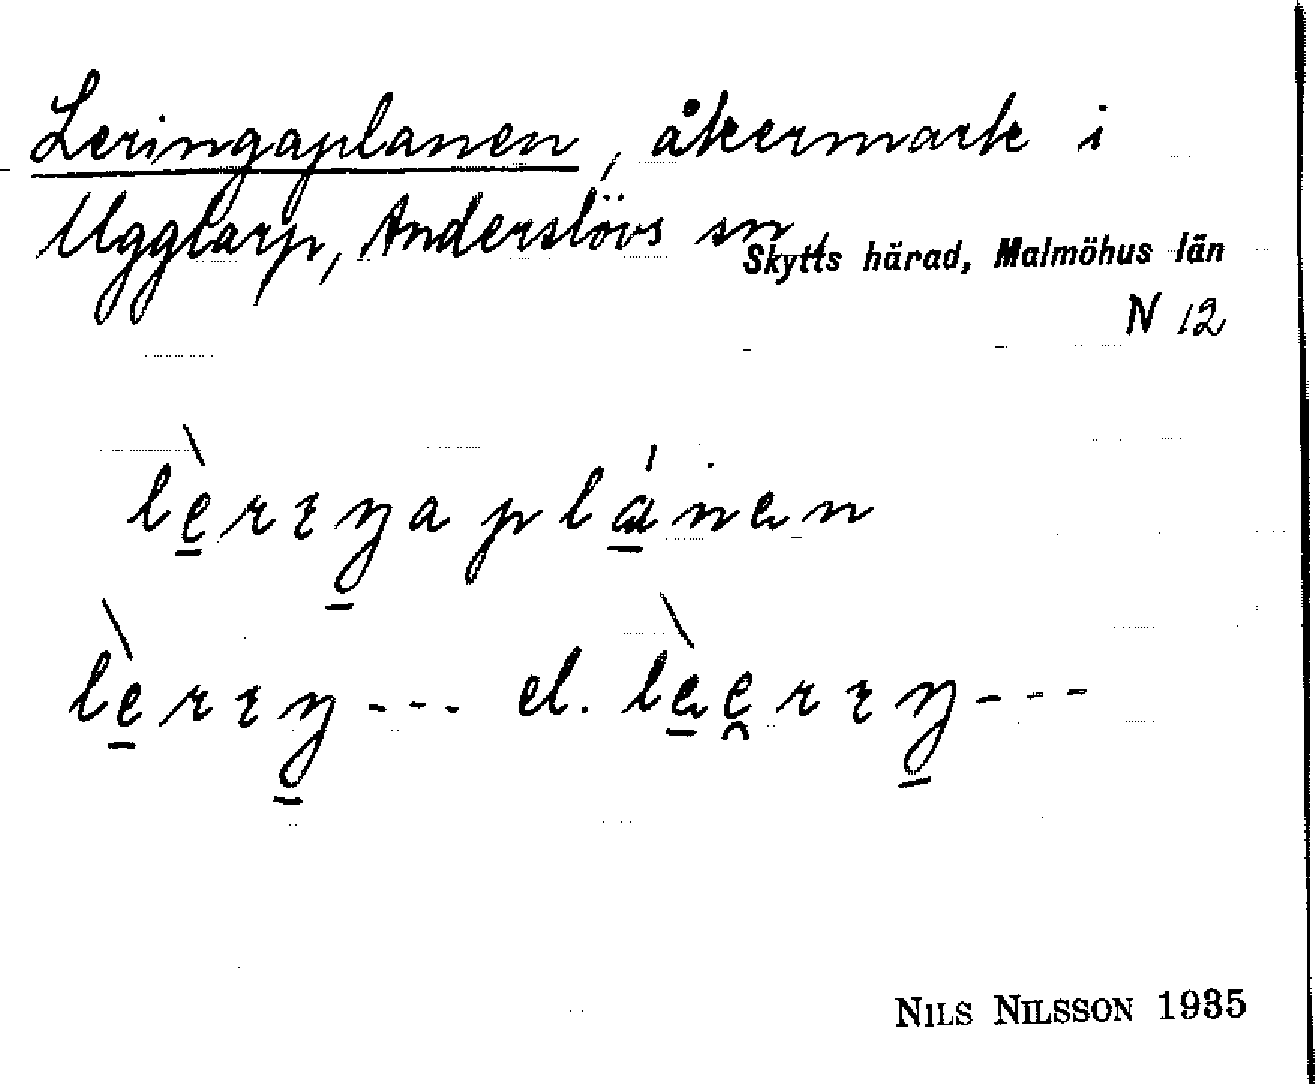 Leringaplanen, åkermark i
Ugglarp, Anderslövs sn,
Skytts härad, Malmöhus län
N 12
el.
NILS NILSSON 1935